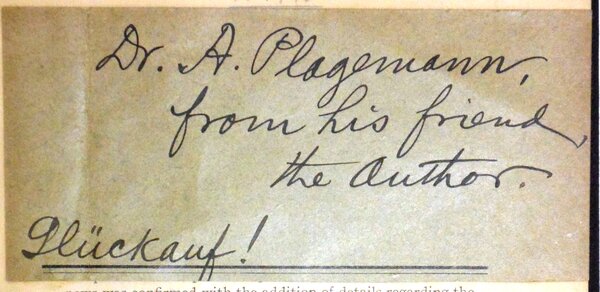 Dr. A. Plagemann,
from his friend,
the Author.
Glückauf!
news was confirmed with the addition of details regarding the